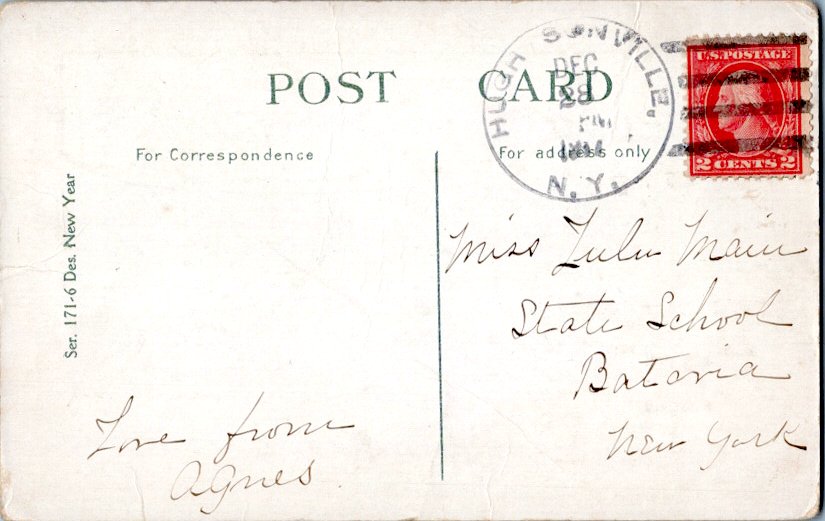 POST CARD
For Correspondence
For address only
HUGHSONVILLE,
DEC
28
PM
N.Y.
U.S. POSTAGE
2 CENTS 2
Ser. 171-6 Des. New Year
Miss Lulu Main
State School
Batavia
New York
Love from
Agnes